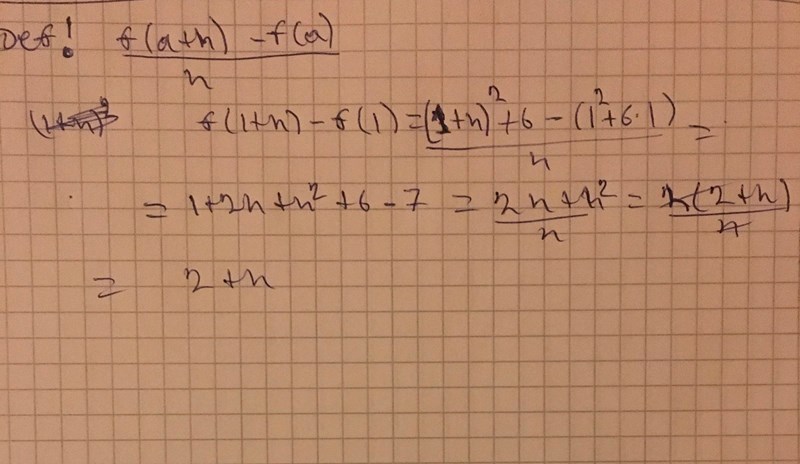 Def! f(a+h) - f(a)
h
f(1+h) - f(1) = (1+h)² + 6 - (1² + 6·1) =
h
= 1 + 2h + h² + 6 - 7 = 2h + h² = h(2+h)
h h
= 2 + h